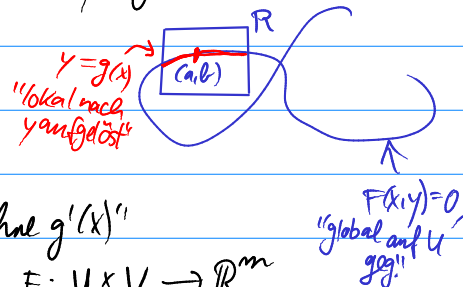 R
y = g(x)
(a,b)
"lokal nach
y aufgelöst"
F(x,y)=0
"global auf U
geg."
hne g'(x)"
F: U x V → ℝᵐ